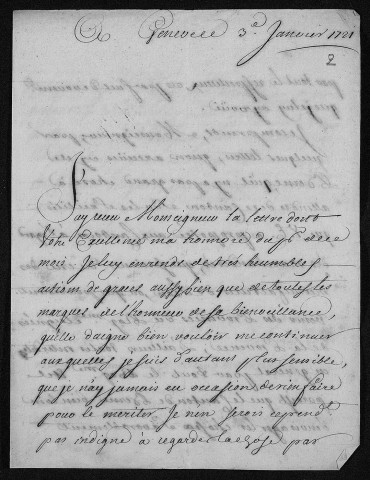 Geneve ce 3e. Janvier 1721
2
J'ay receu Monseigneur la lettre dont
Votre Excellence m'a honoré du de ce
mois Je luy en rends de tres humbles
actions de graces aussy bien que de toutes les
marques de l'honneur de sa bienveillance,
qu'elle daigne bien vouloir me continuer
auxquelles je suis d'autant plus sensible,
que je n'ay jamais eu occasion de rien faire
pour le meriter, Je n'en serois cepend.t
pas indigne à regarder la chose par